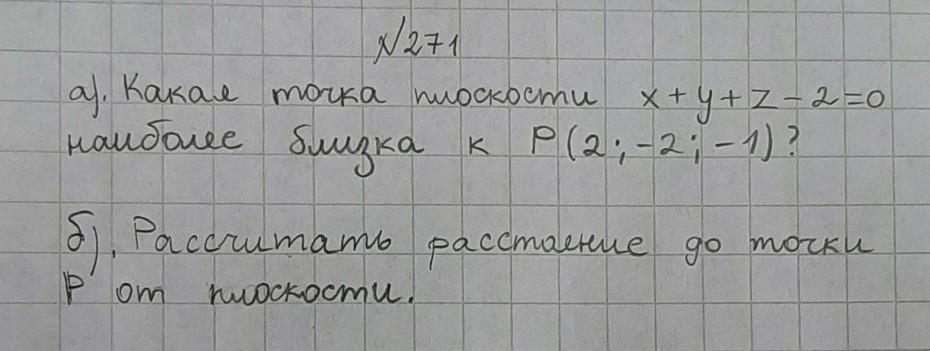 №271
а). Какая точка плоскости x+y+z-2=0
наиболее близка к P(2;-2;-1)?
б). Рассчитать расстояние до точки
P от плоскости.